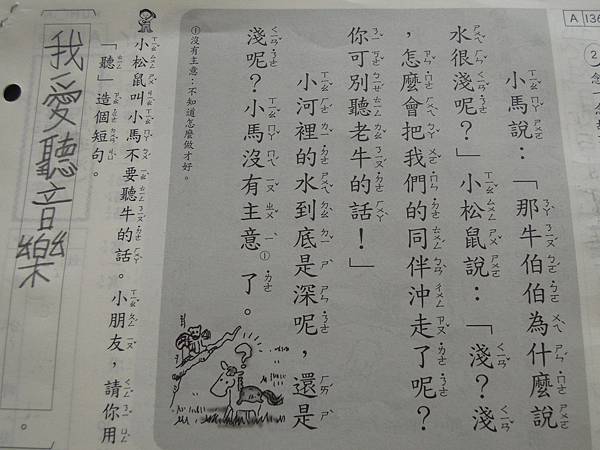 A 136
2
小馬說：「那牛伯伯為什麼說
水很淺呢？」小松鼠說：「淺？淺
，怎麼會把我們的同伴沖走了呢？
你可別聽老牛的話！」
小河裡的水到底是深呢，還是
淺呢？小馬沒有主意①了。
①沒有主意：不知道怎麼做才好。
小松鼠叫小馬不要聽牛的話。小朋友，請你用
「聽」造個短句。
我愛聽音樂
。